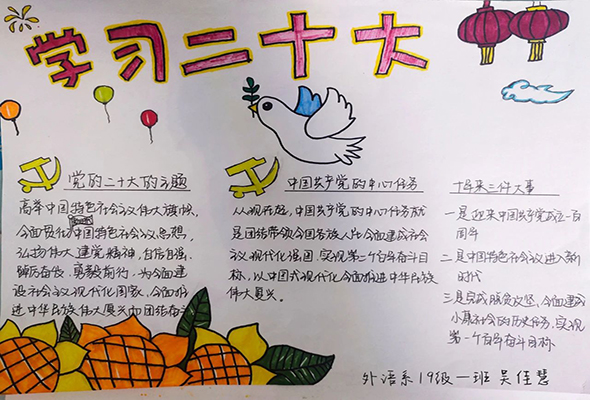 学习二十大
党的二十大的主题
高举中国特色社会主义伟大旗帜，
全面贯彻中国特色社会主义思想，
弘扬伟大建党精神，自信自强、
踔厉奋发、勇毅前行，为全面建
设社会主义现代化国家、全面推
进中华民族伟大复兴而团结奋斗
中国共产党的中心任务
从现在起，中国共产党的中心任务就
是团结带领全国各族人民全面建成社会
主义现代化强国、实现第二个百年奋斗目
标，以中国式现代化全面推进中华民族
伟大复兴。
十年来三件大事
一是迎来中国共产党成立一百
周年
二是中国特色社会主义进入新
时代
三是完成脱贫攻坚、全面建成
小康社会的历史任务，实现
第一个百年奋斗目标
外语系19级一班 吴佳慧